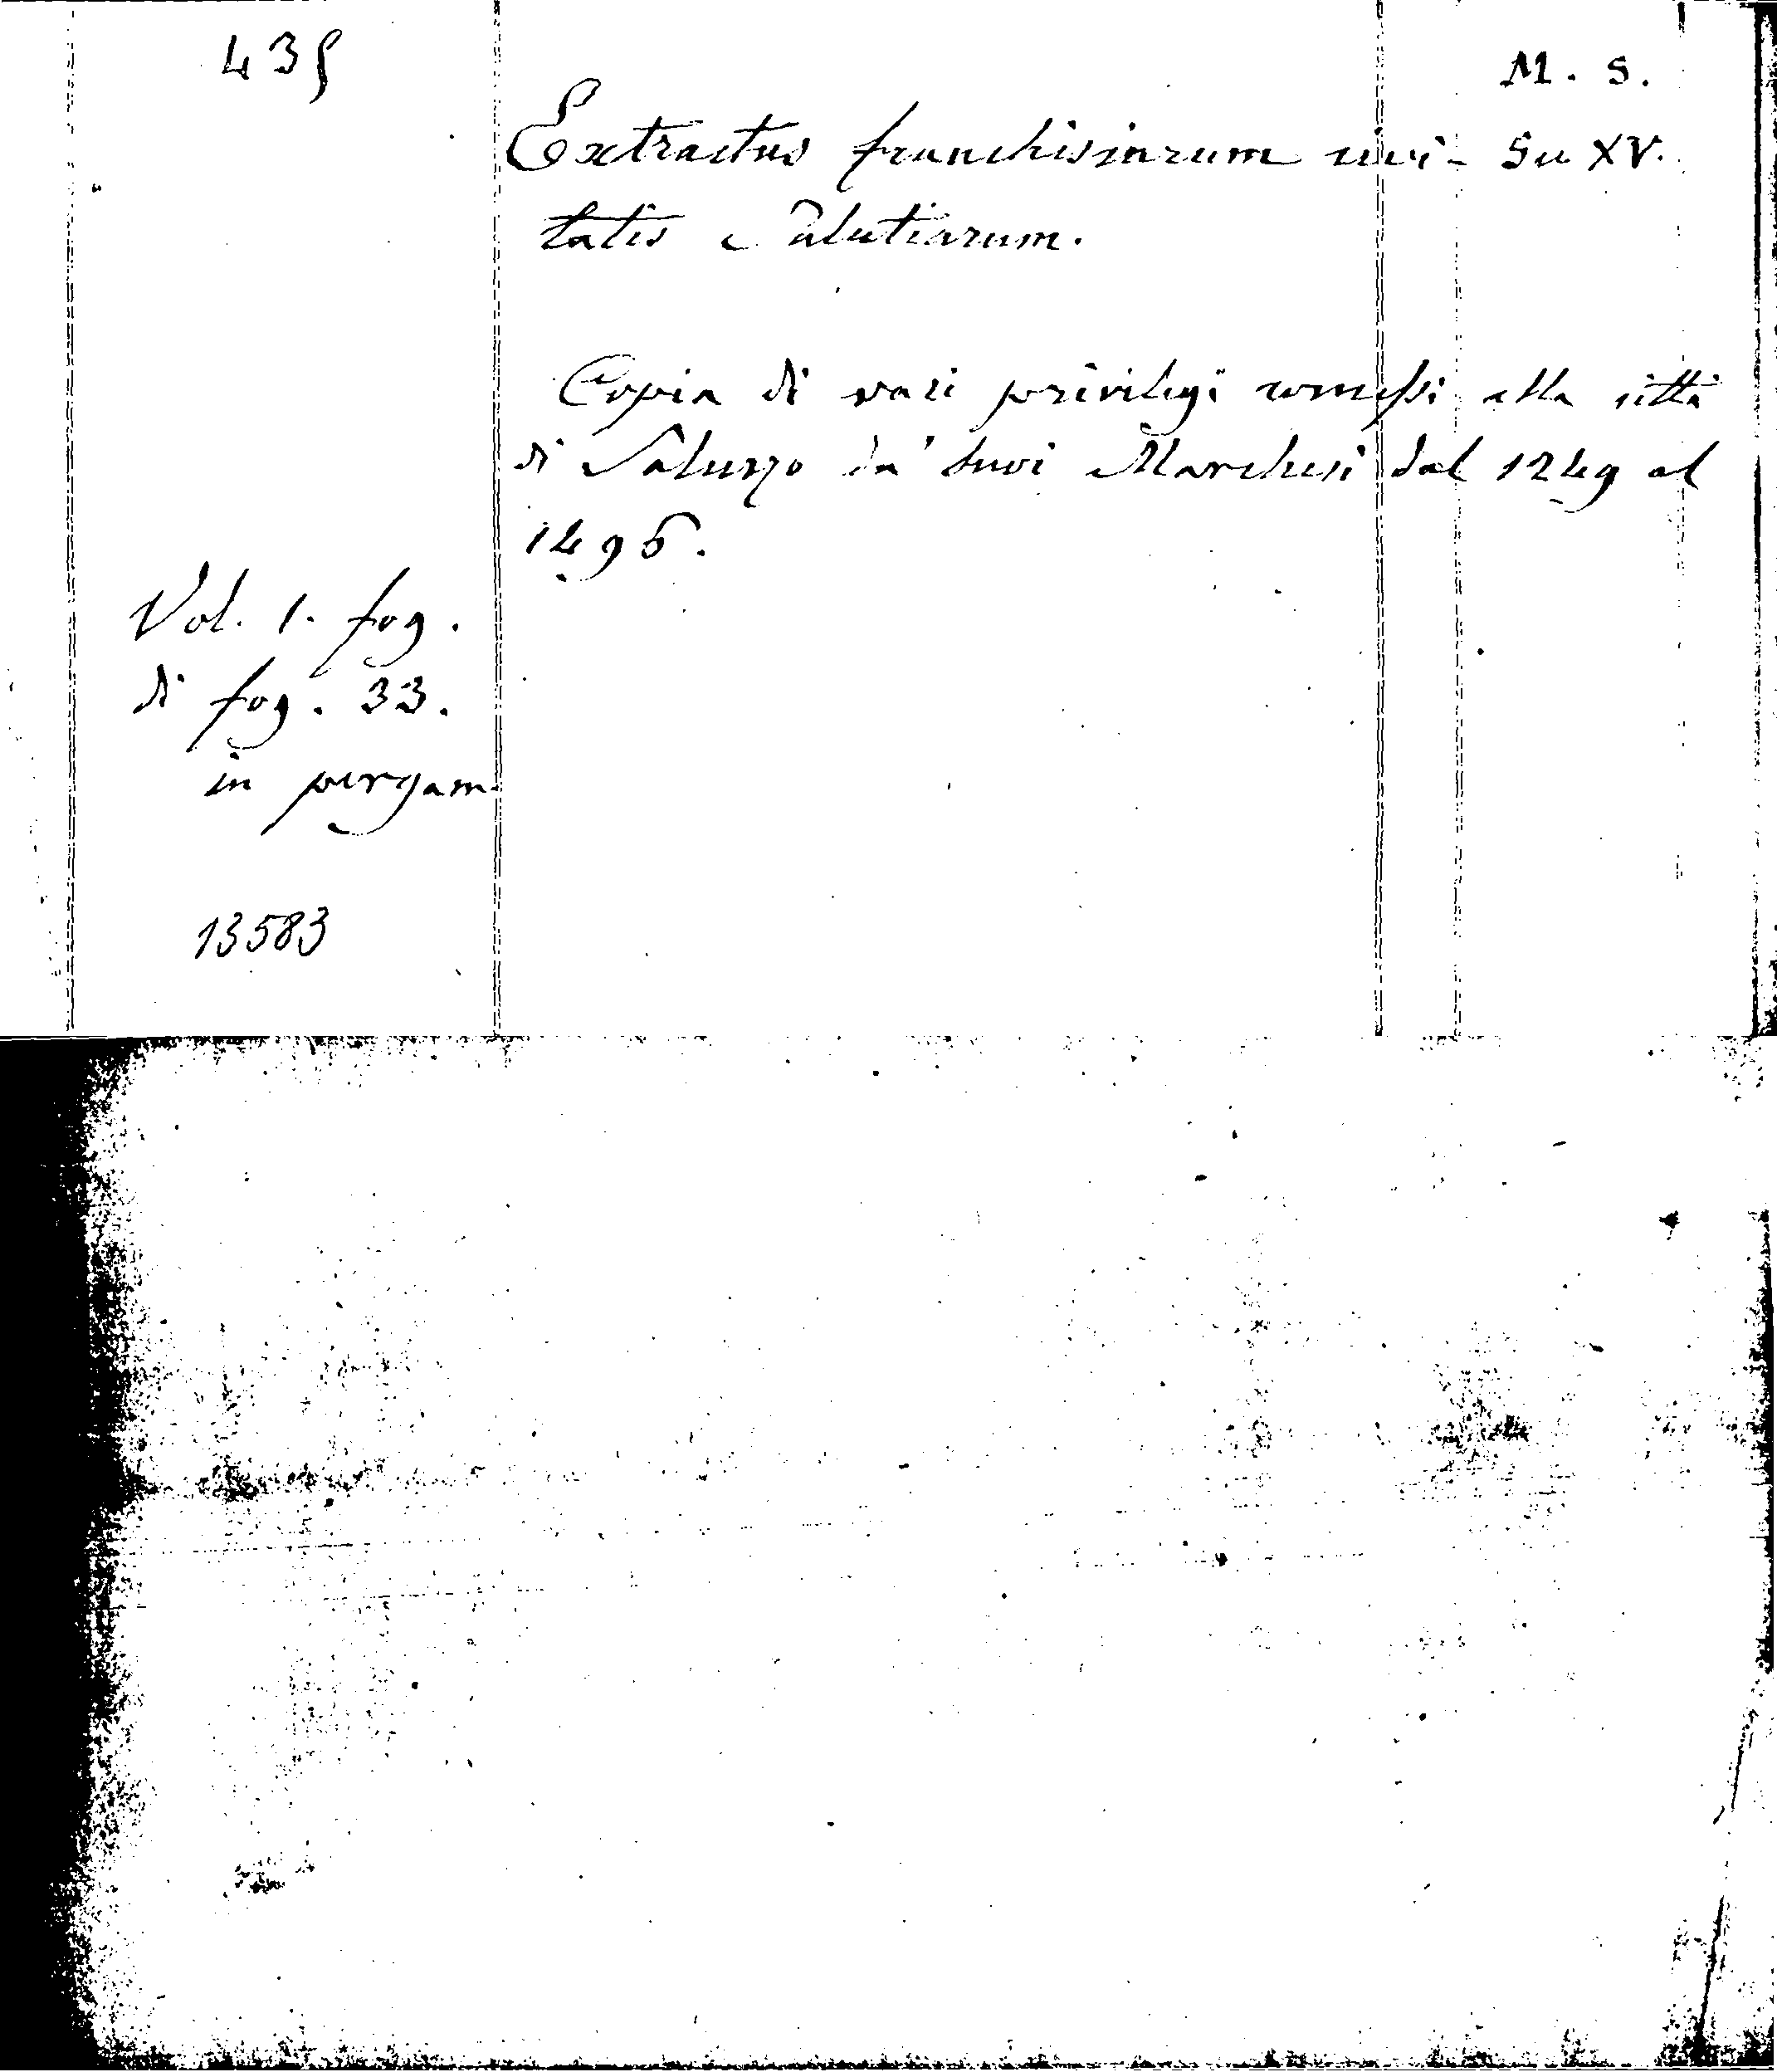 435
M. S.
Extractus franchisiarum civi- Sec XV.
tatis Salutiarum.
Copia di vari privilegi concessi alla città
di Saluzzo da' suoi Marchesi dal 1249 al
1496.
Vol. 1. fog.
di fog. 33.
in pergam.
13583